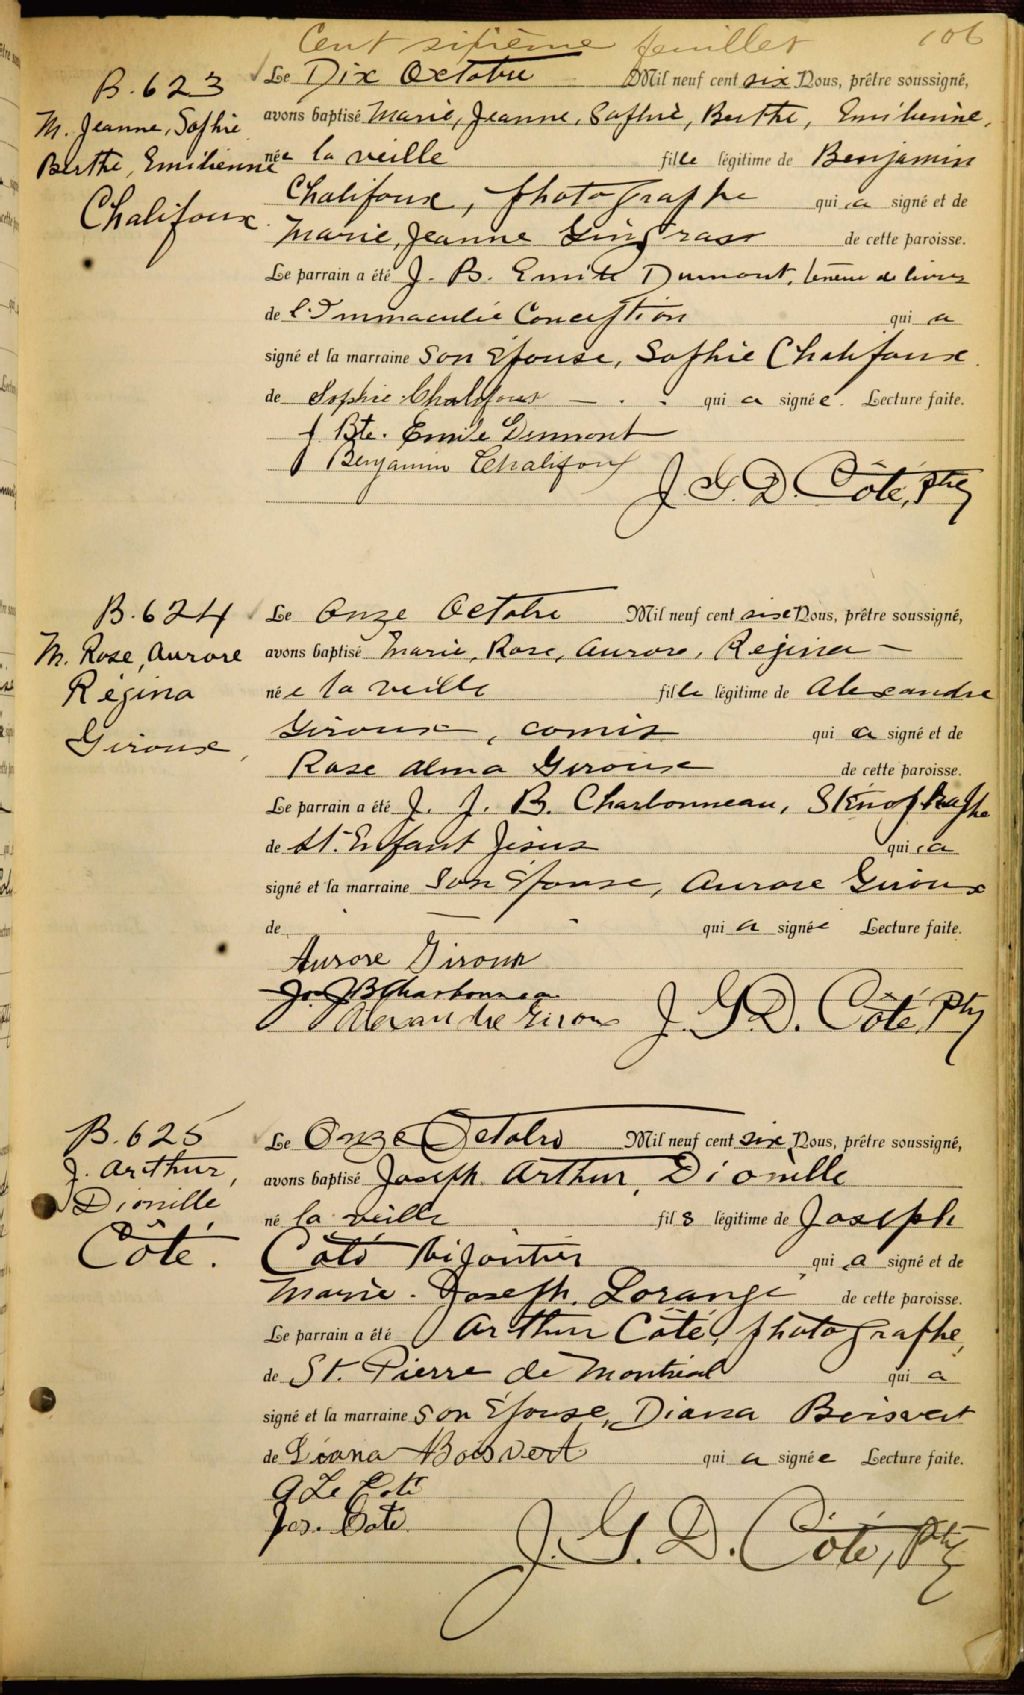 Cent sixième feuillet 106
B. 623
M. Jeanne, Sophie
Berthe, Emilienne
Chalifoux
Le Dix Octobre Mil neuf cent six Nous, prêtre soussigné,
avons baptisé Marie, Jeanne, Sophie, Berthe, Emilienne,
née la veille fille légitime de Benjamin
Chalifoux, photographe qui a signé et de
Marie, Jeanne Gingrass de cette paroisse.
Le parrain a été J. B. Emile Dumont, teneur de livres
de l'Immaculée Conception qui a
signé et la marraine son épouse, Sophie Chalifoux
de Sophie Chalifoux qui a signée. Lecture faite.
J Bte. Emile Dumont
Benjamin Chalifoux
J. G. D. Côté, Ptre
B. 624
M. Rose, Aurore
Régina
Giroux,
Le Onze Octobre Mil neuf cent six Nous, prêtre soussigné,
avons baptisé Marie, Rose, Aurore, Régina
née la veille fille légitime de Alexandre
Giroux, comis qui a signé et de
Rose Alma Giroux de cette paroisse.
Le parrain a été J. J. B. Charbonneau, Sténographe
de St. Enfant Jésus qui a
signé et la marraine son épouse, Aurore Giroux
de qui a signée Lecture faite.
Aurore Giroux
Jos JB Charbonneau
Alexandre Giroux
J. G. D. Côté, Ptre
B. 625
J. Arthur,
Dionille
Côté.
Le Onze Octobre Mil neuf cent six Nous, prêtre soussigné,
avons baptisé Joseph Arthur, Dionille
né la veille fils légitime de Joseph
Côté bijoutier qui a signé et de
Marie. Joseph. Lorange de cette paroisse.
Le parrain a été Arthur Côté, photographe,
de St. Pierre de Montréal qui a
signé et la marraine son épouse, Diana Boisvert
de Diana Boisvert qui a signée Lecture faite.
Côté
Jos. Cote
J. G. D. Côté, Ptre